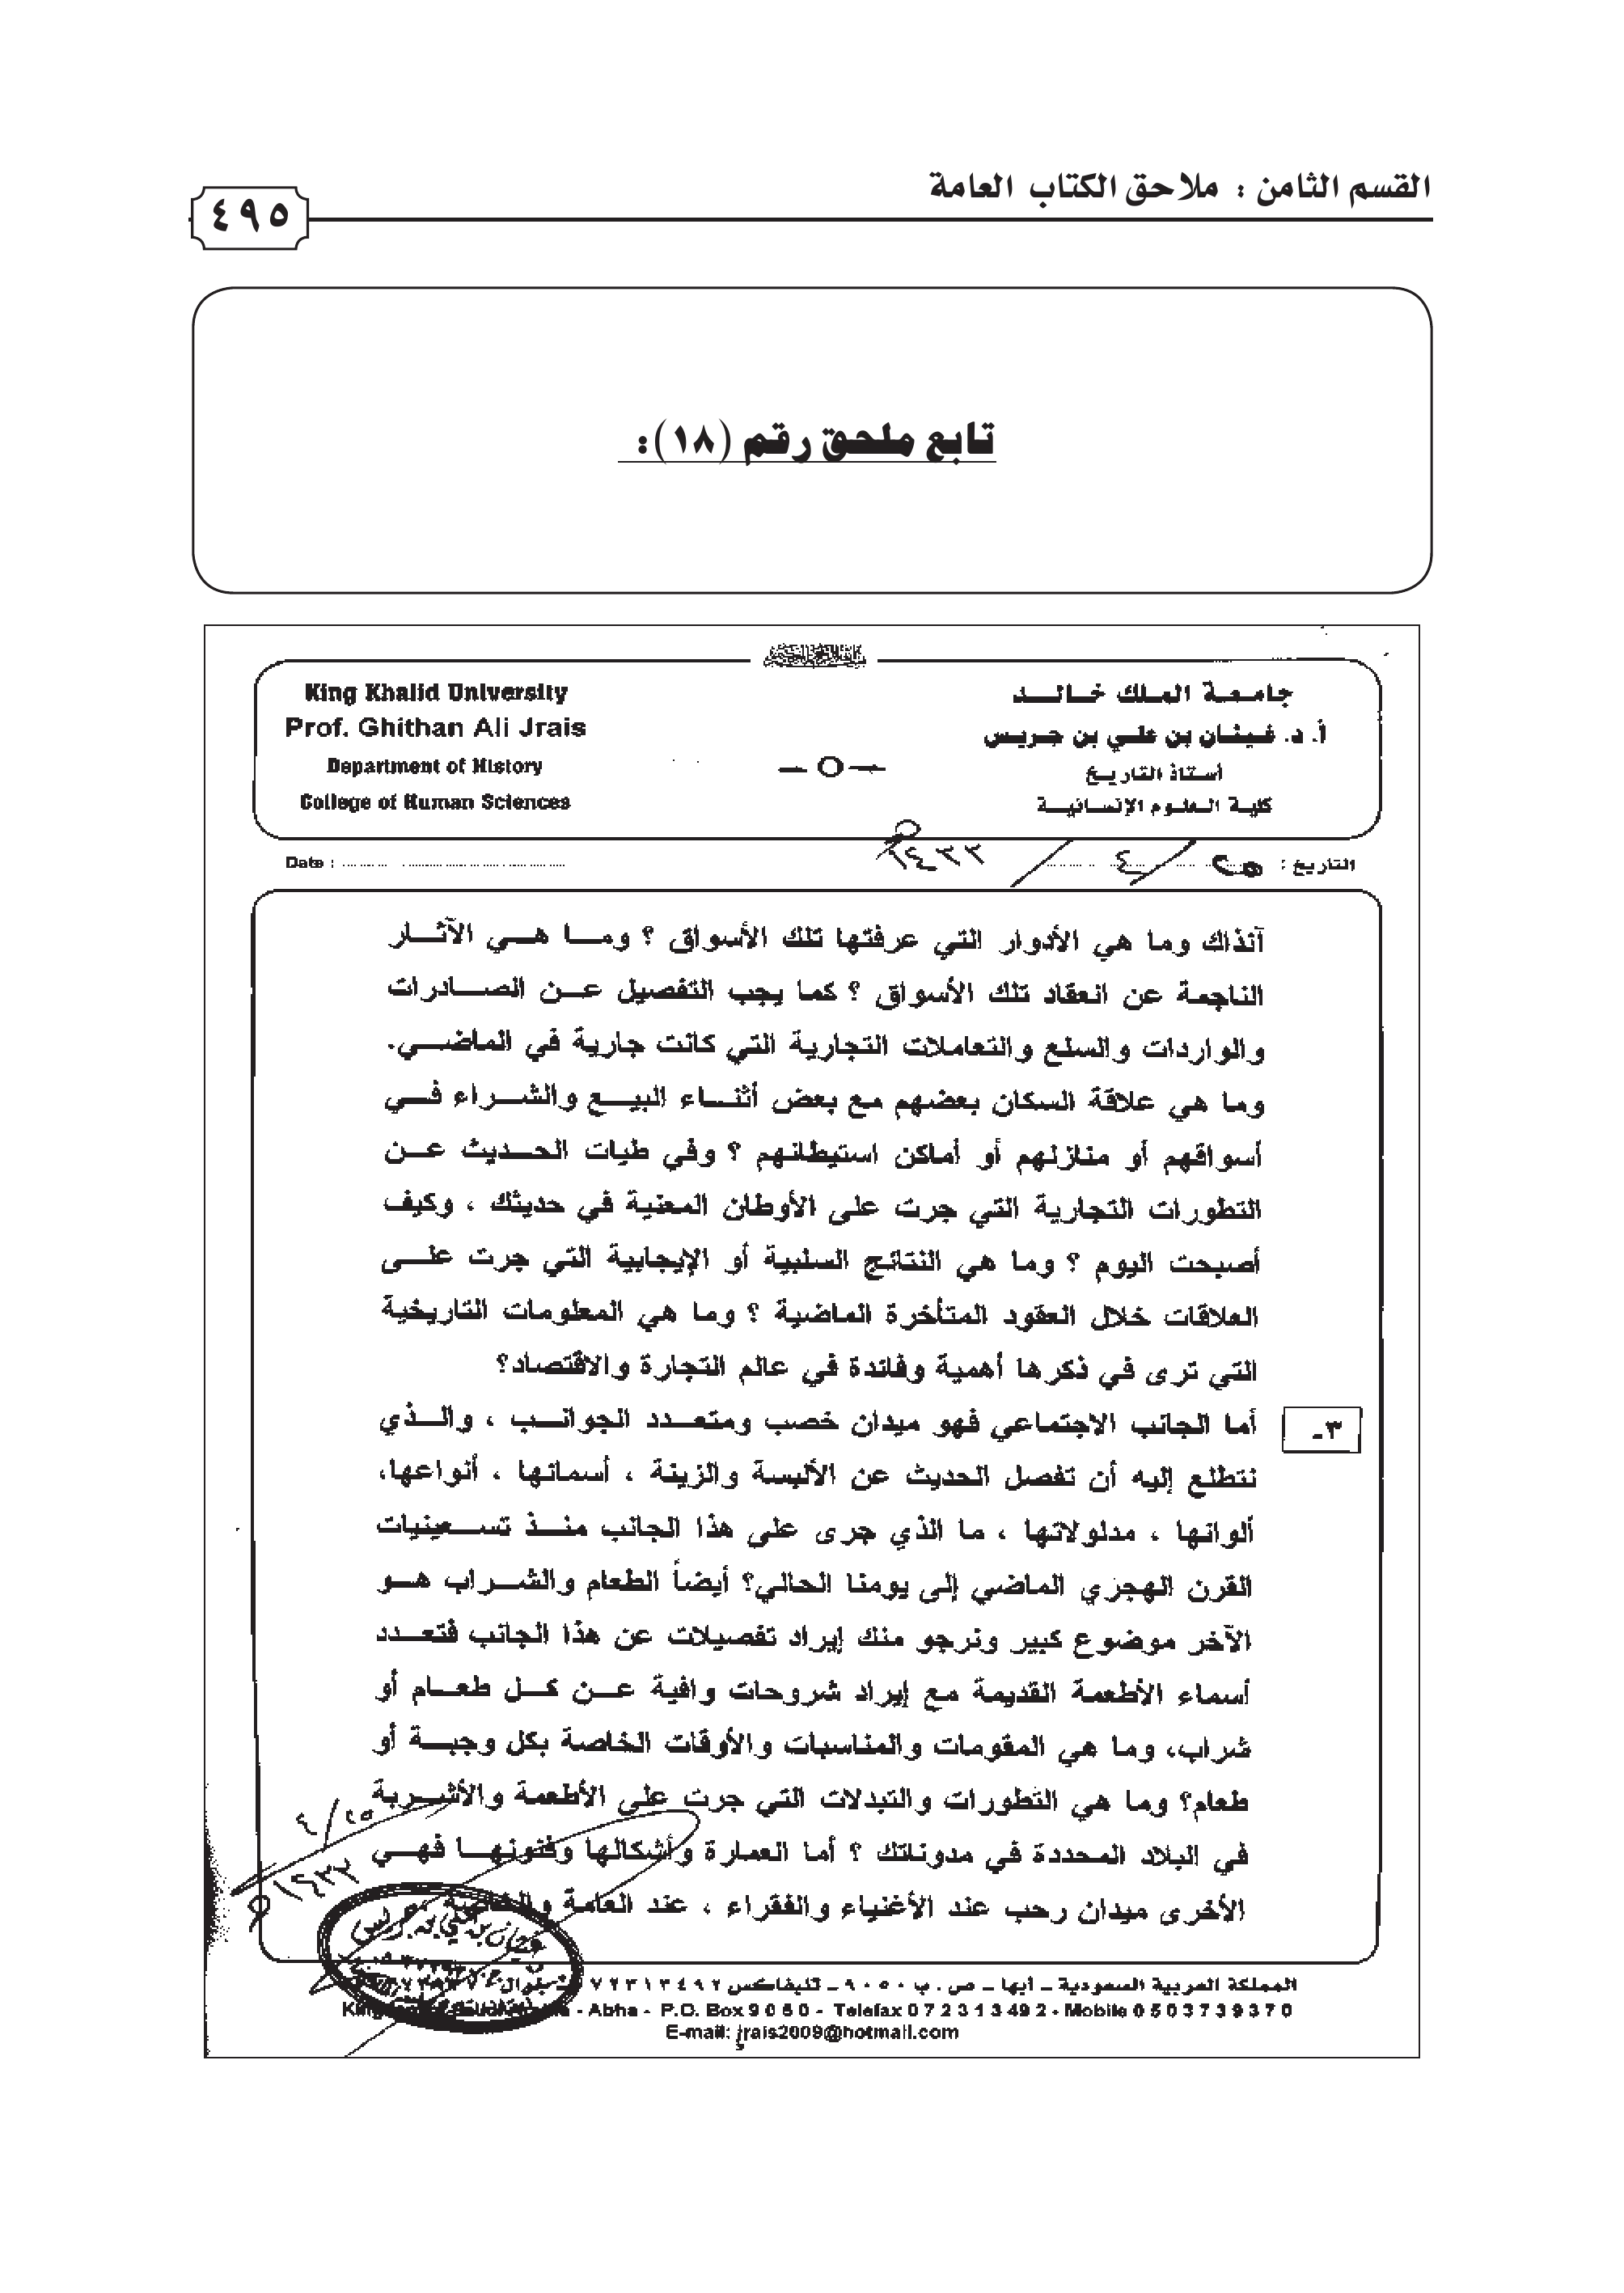 القسم الثامن : ملاحق الكتاب العامة
٤٩٥
تابع ملحق رقم (١٨):
King Khalid University
Prof. Ghithan Ali Jrais
Department of History
College of Human Sciences
جامعة الملك خالد
أ. د. غيثان بن علي بن جريس
أستاذ التاريخ
كلية العلوم الإنسانية
-٥-
Date :
التاريخ : ٢٥ / ٤ / ١٤٣٢هـ
آنذاك وما هي الأدوار التي عرفتها تلك الأسواق ؟ وما هي الآثار
الناجمة عن انعقاد تلك الأسواق ؟ كما يجب التفصيل عن الصادرات
والواردات والسلع والتعاملات التجارية التي كانت جارية في الماضي.
وما هي علاقة السكان بعضهم مع بعض أثناء البيع والشراء في
أسواقهم أو منازلهم أو أماكن استيطانهم ؟ وفي طيات الحديث عن
التطورات التجارية التي جرت على الأوطان المعنية في حديثك ، وكيف
أصبحت اليوم ؟ وما هي النتائج السلبية أو الإيجابية التي جرت على
العلاقات خلال العقود المتأخرة الماضية ؟ وما هي المعلومات التاريخية
التي ترى في ذكرها أهمية وفائدة في عالم التجارة والاقتصاد؟
٣- أما الجانب الاجتماعي فهو ميدان خصب ومتعدد الجوانب ، والذي
نتطلع إليه أن تفصل الحديث عن الألبسة والزينة ، أسمائها ، أنواعها،
ألوانها ، مدلولاتها ، ما الذي جرى على هذا الجانب منذ تسعينيات
القرن الهجري الماضي إلى يومنا الحالي؟ أيضاً الطعام والشراب هو
الآخر موضوع كبير ونرجو منك إيراد تفصيلات عن هذا الجانب فتعدد
أسماء الأطعمة القديمة مع إيراد شروحات وافية عن كل طعام أو
شراب، وما هي المقومات والمناسبات والأوقات الخاصة بكل وجبة أو
طعام؟ وما هي التطورات والتبدلات التي جرت على الأطعمة والأشربة
في البلاد المحددة في مدوناتك ؟ أما العمارة وأشكالها وفنونها فهي
الأخرى ميدان رحب عند الأغنياء والفقراء ، عند العامة والخاصة
٢٥/٤
١٤٣٢هـ
غيثان بن علي بن جريس
المملكة العربية السعودية - أبها - ص . ب ٩٠٥٠ - تليفاكس ٠٧٢٣١٣٤٩٢
- Abha - P.O. Box 9050 - Telefax 072313492 - Mobile 0503739370
E-mail: jrais2009@hotmail.com